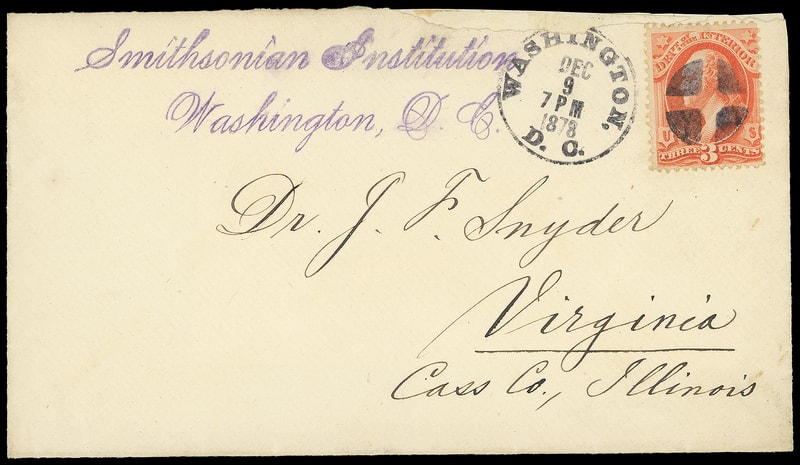 Smithsonian Institution
Washington, D. C.
WASHINGTON,
DEC
9
7 PM
1878
D. C.
DEPT. OF THE INTERIOR
U S
THREE 3 CENTS
Dr. J. F. Snyder
Virginia
Cass Co., Illinois